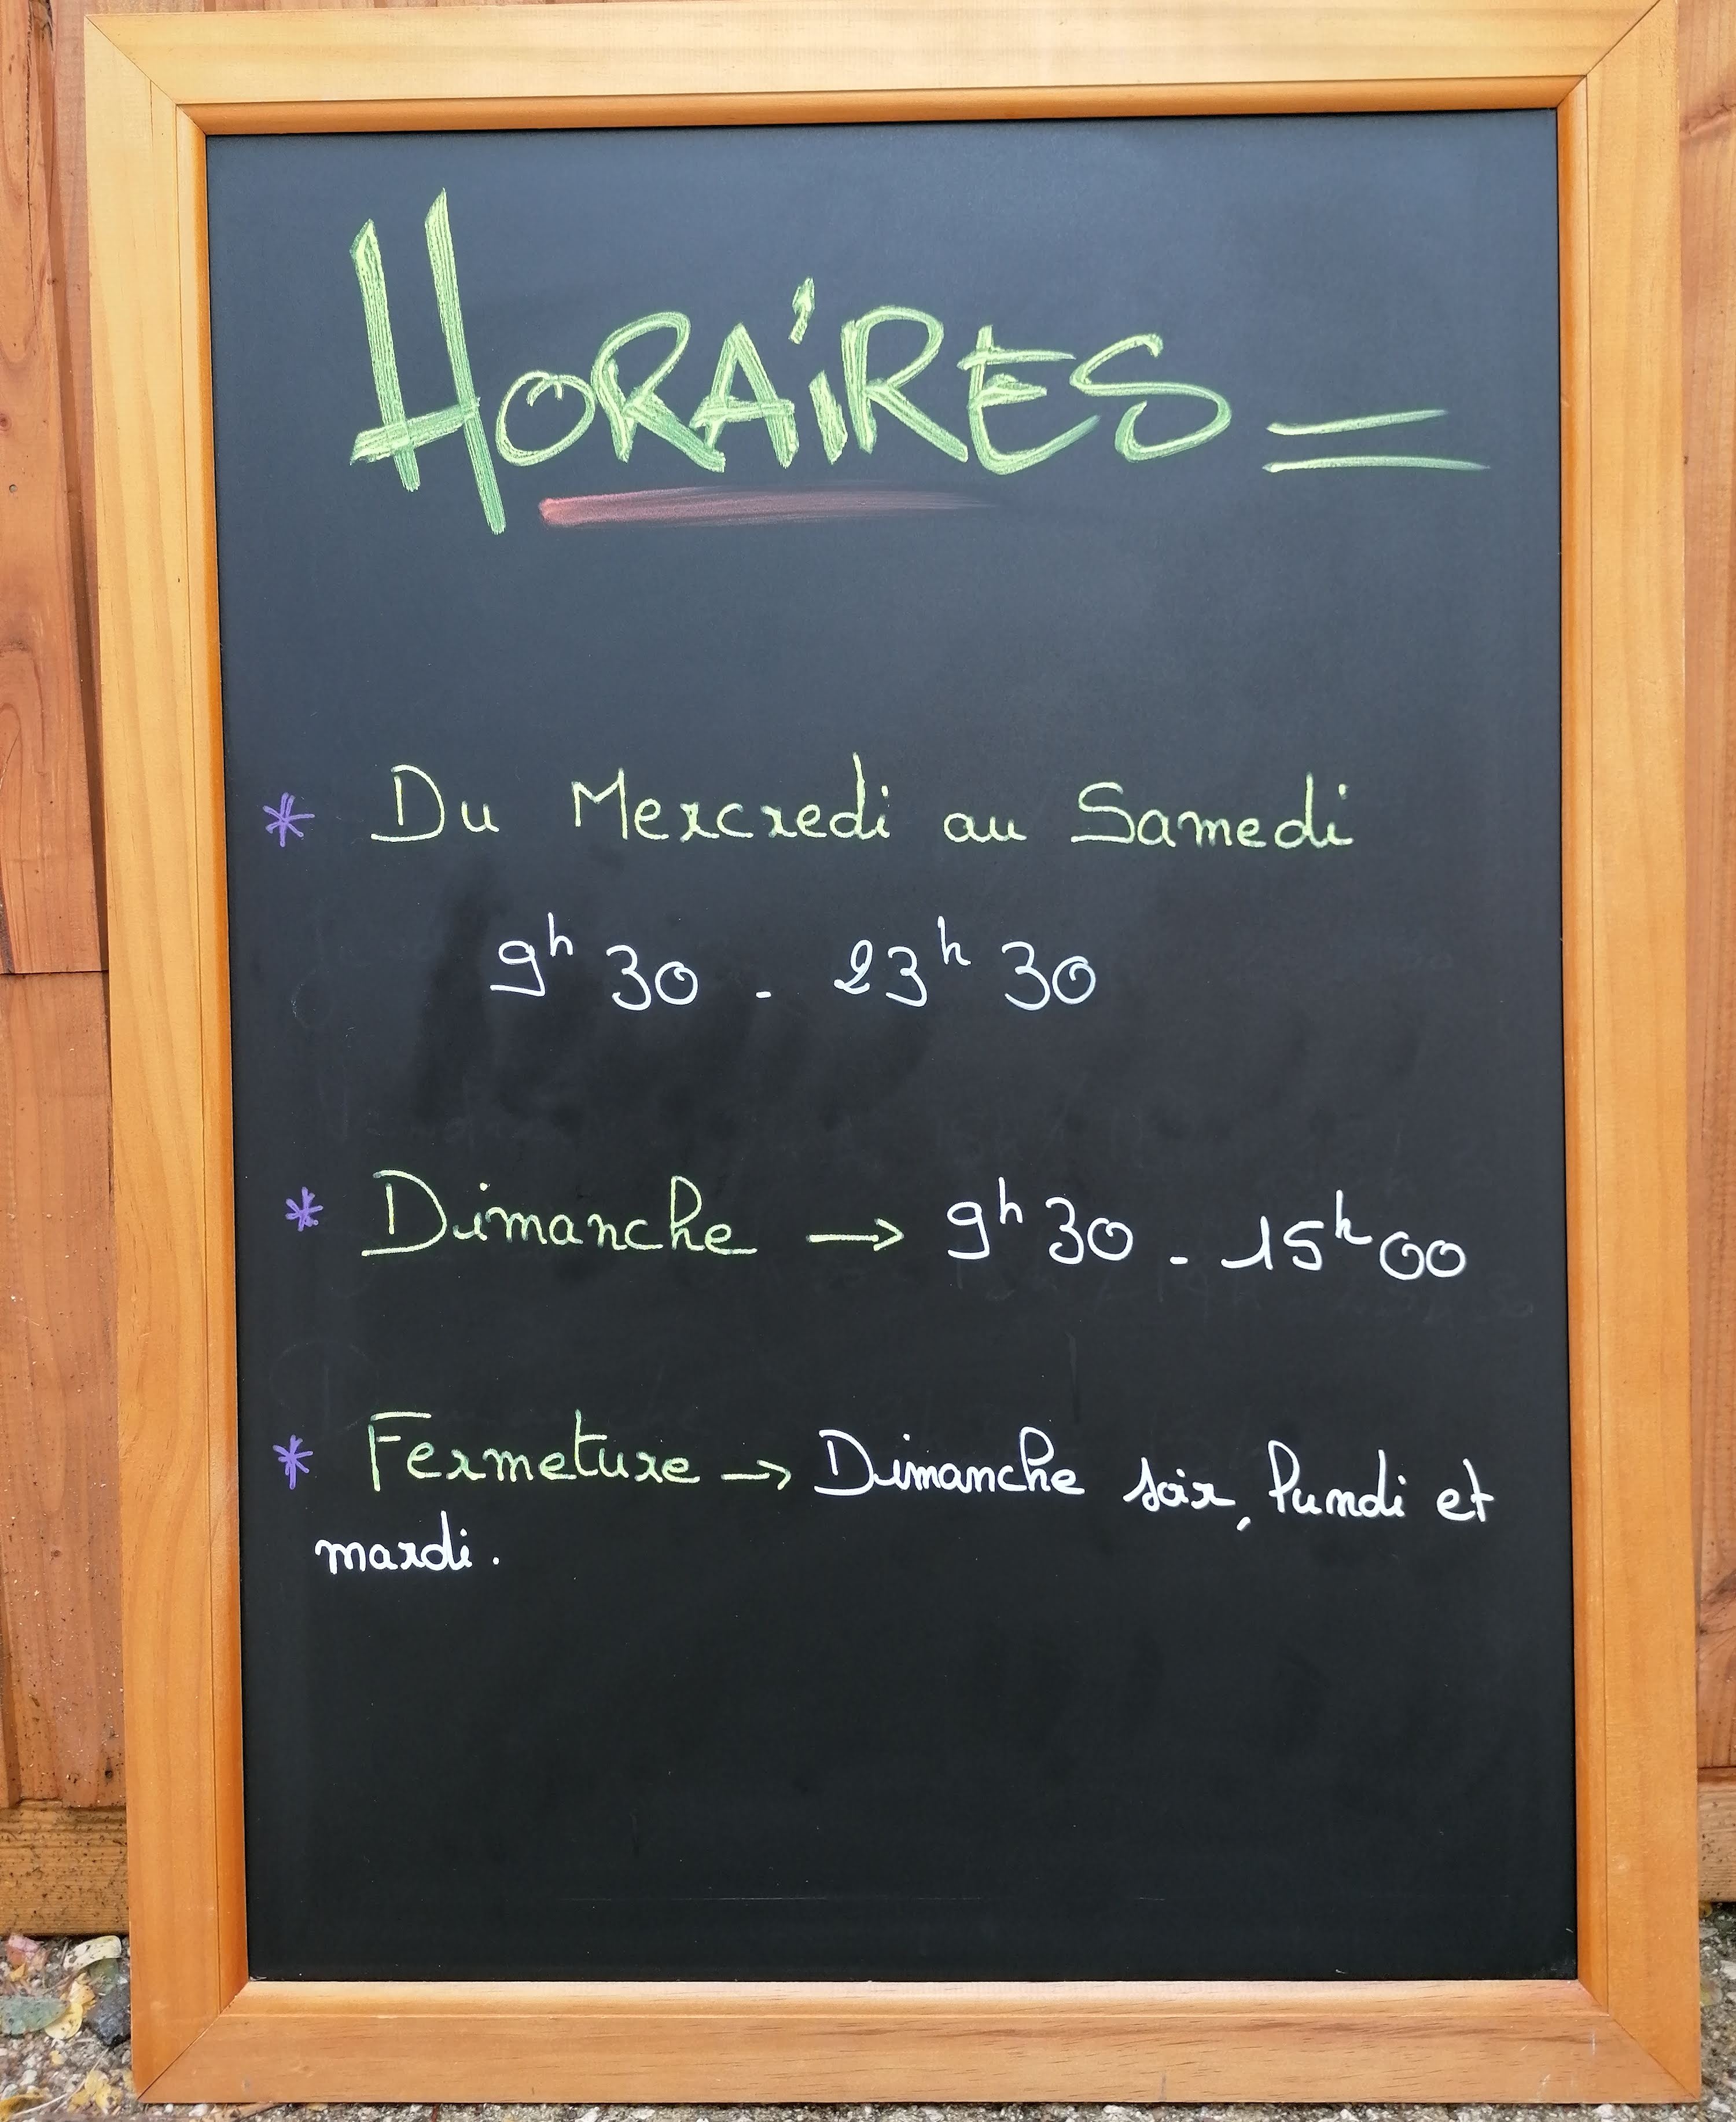 HORAiRES =
* Du Mercredi au Samedi
9h30 - 23h30
* Dimanche → 9h30 - 15h00
* Fermeture → Dimanche soir, lundi et
mardi.